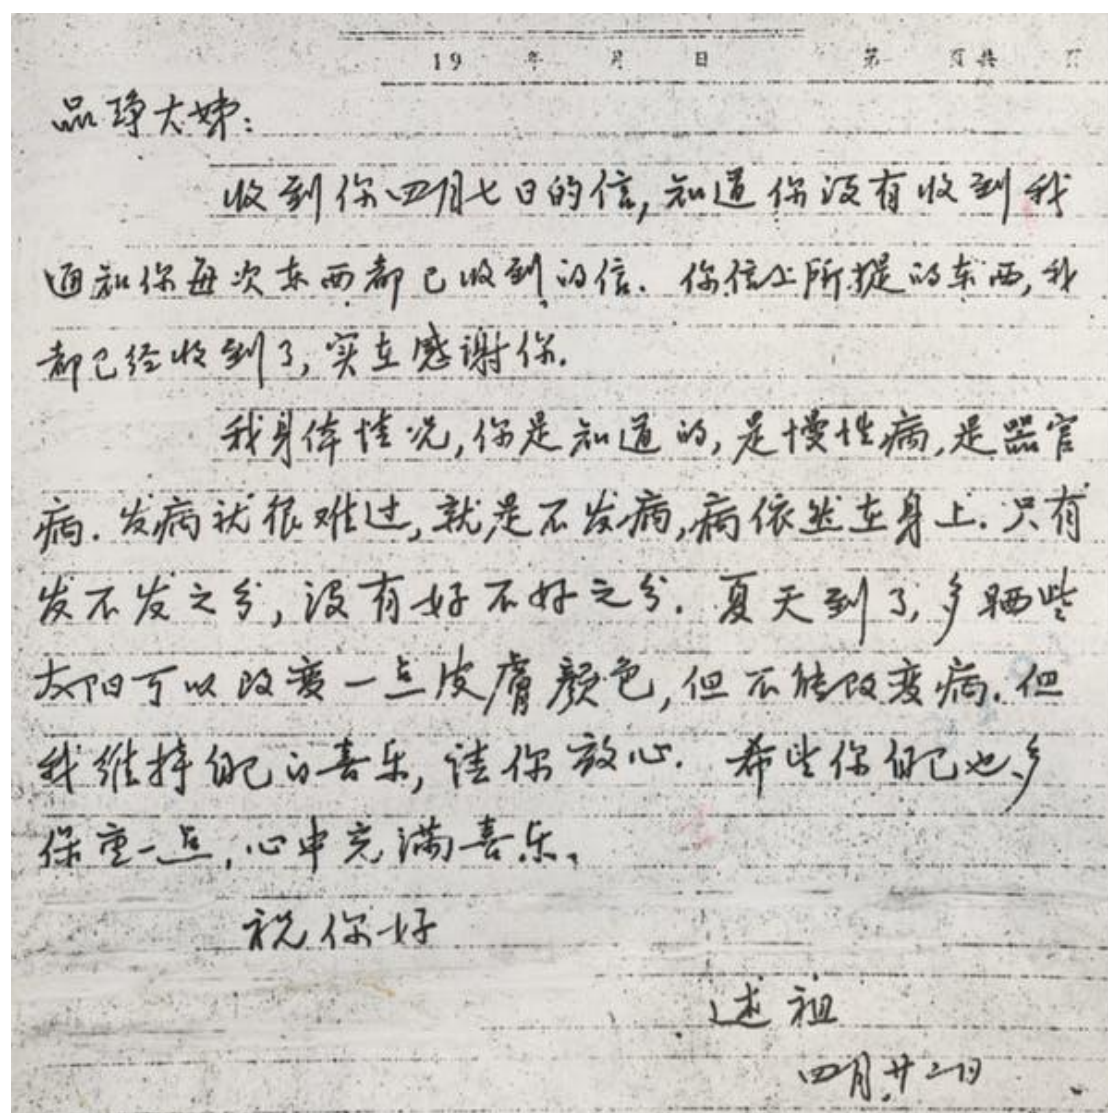 19 年 月 日 第 页共 页
品琤大姊：
收到你四月七日的信，知道你没有收到我
通知你每次东西都已收到的信．你信上所提的东西，我
都已经收到了，实在感谢你．
我身体情况，你是知道的，是慢性病，是器官
病．发病就很难过，就是不发病，病依然在身上．只有
发不发之分，没有好不好之分．夏天到了，多晒些
太阳可以改变一点皮膚颜色，但不能改变病．但
我维持自己的喜乐，请你放心．希望你自己也多
保重一点，心中充满喜乐。
祝你好
述祖
四月廿二日